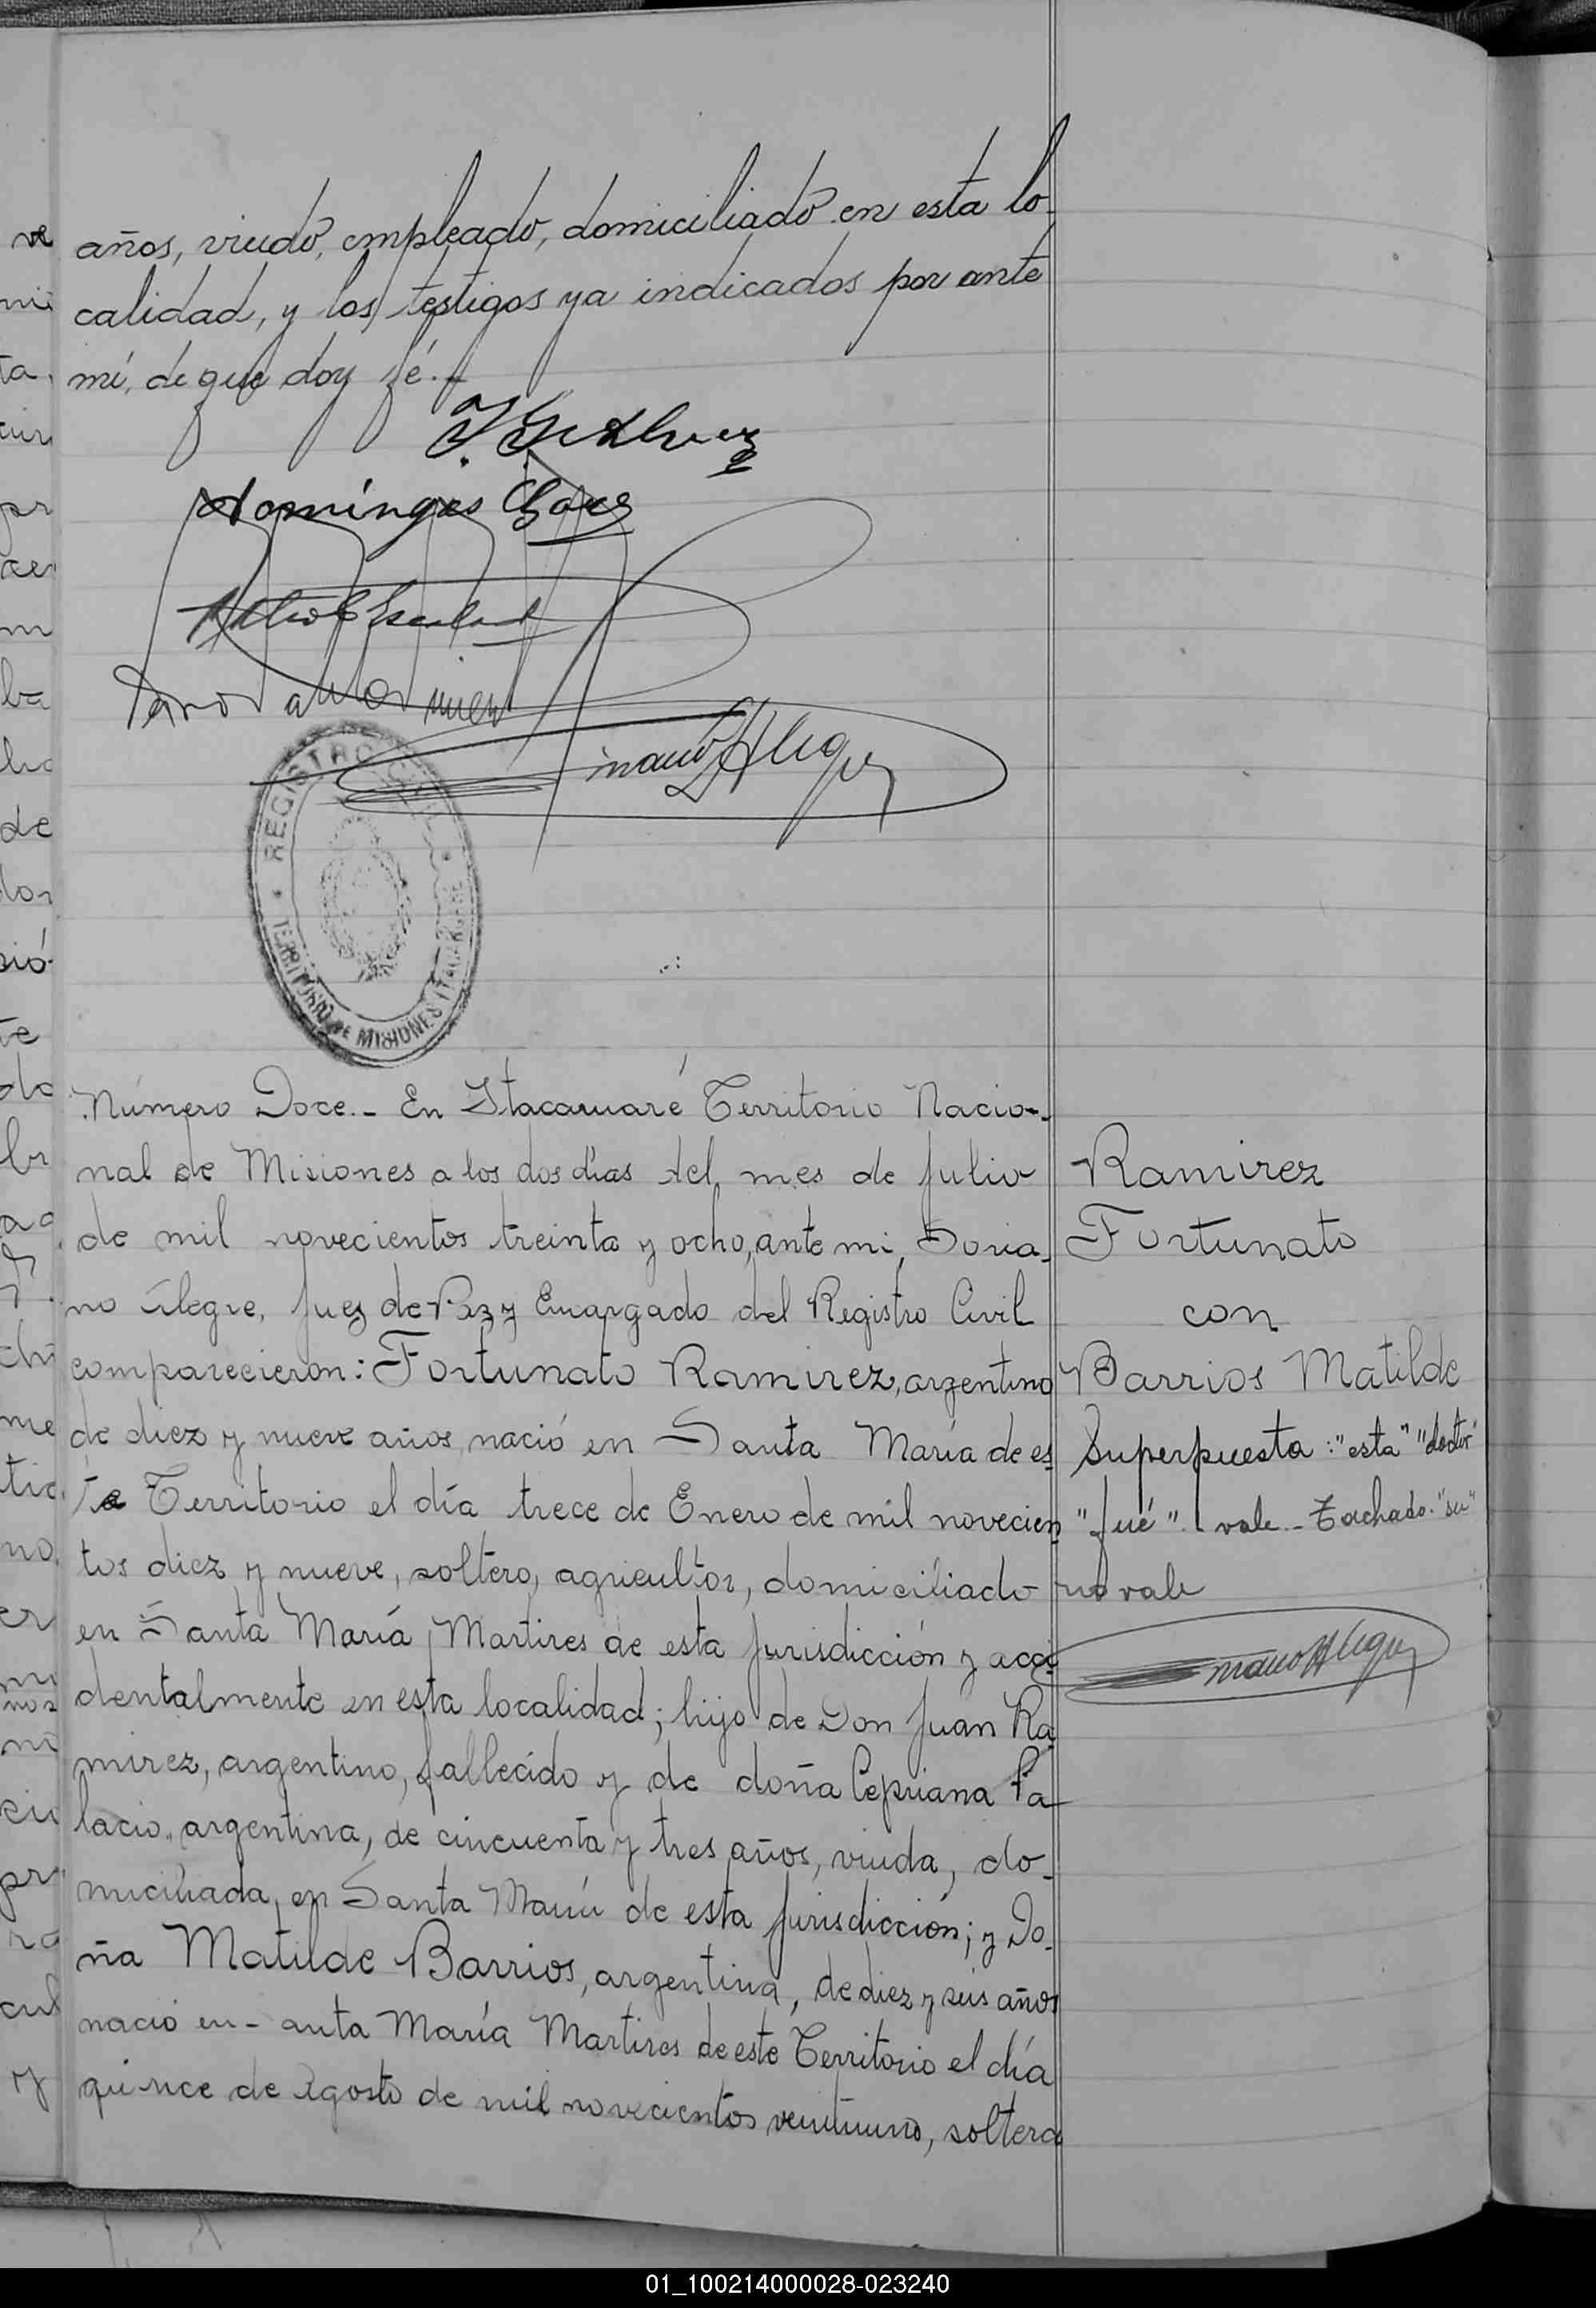 años, viudo, empleado, domiciliado en esta lo-
calidad, y los testigos ya indicados por ante
mí, de que doy fé.-
REGISTRO CIVIL
TERRITORIO DE MISIONES ITACARUARE
Número Doce.- En Itacaruaré Territorio Nacio-
nal de Misiones a los dos días del mes de Julio
de mil novecientos treinta y ocho, ante mi, Soria-
no Alegre, Juez de Paz y Encargado del Registro Civil
comparecieron: Fortunato Ramirez, argentino
de diez y nueve años, nació en Santa María de es
te Territorio el día trece de Enero de mil novecien
tos diez y nueve, soltero, agricultor, domiciliado
en Santa María Martires de esta Jurisdicción y acci
dentalmente en esta localidad; hijo de Don Juan Ra
mirez, argentino, fallecido y de doña Cepriana Pa
lacio, argentina, de cincuenta y tres años, viuda, do-
miciliada en Santa María de esta Jurisdicción; y Do-
ña Matilde Barrios, argentina, de diez y seis años
nació en Santa María Martires de este Territorio el día
quince de Agosto de mil novecientos veintiuno, soltera
Ramirez
Fortunato
con
Barrios Matilde
Superpuesta: "esta" "doctor"
"fué". vale.- Tachado: "su"
no vale
01_100214000028-023240